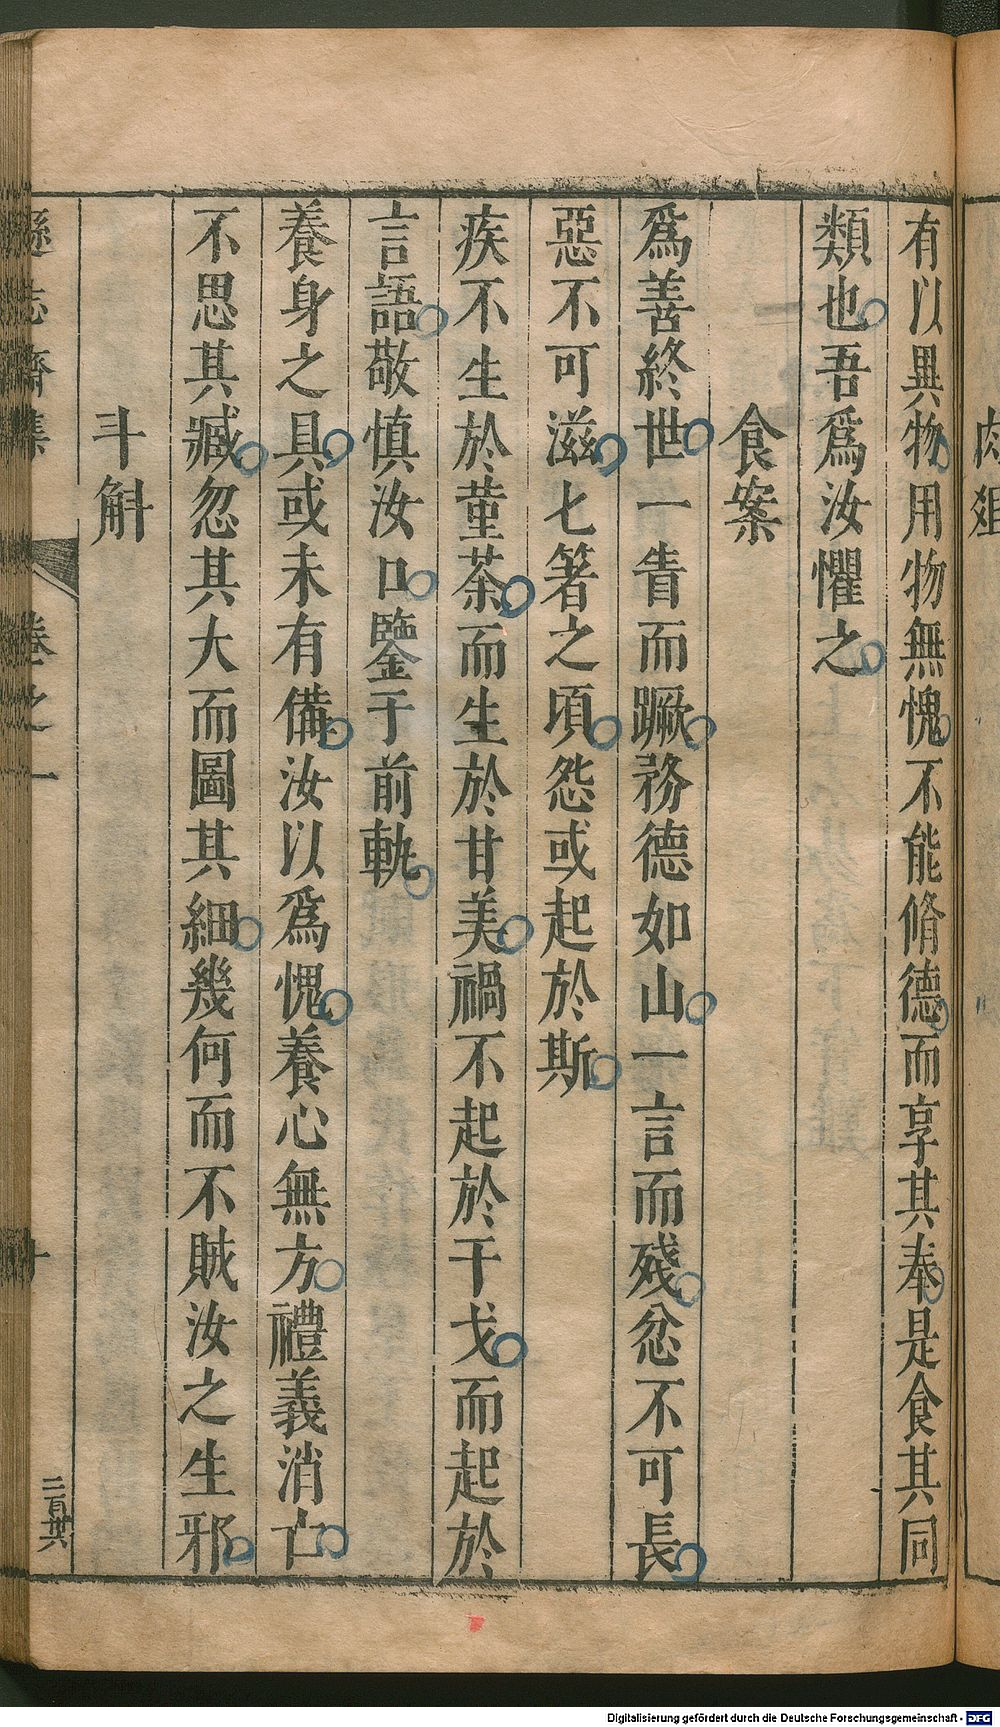 肉俎
有以異物用物無愧不能脩德而享其奉是食其同
類也吾爲汝懼之
食案
爲善終世一眚而蹶務德如山一言而殘忿不可長
惡不可滋匕箸之頃怨或起於斯
疾不生於菫荼而生於甘美禍不起於干戈而起於
言語敬慎汝口鑒于前軌
養身之具或未有備汝以爲愧養心無方禮義消亡
不思其臧忽其大而圖其細幾何而不賊汝之生邪
斗斛
遜志齋集
卷之一
十
二百廿六
Digitalisierung gefördert durch die Deutsche Forschungsgemeinschaft - DFG